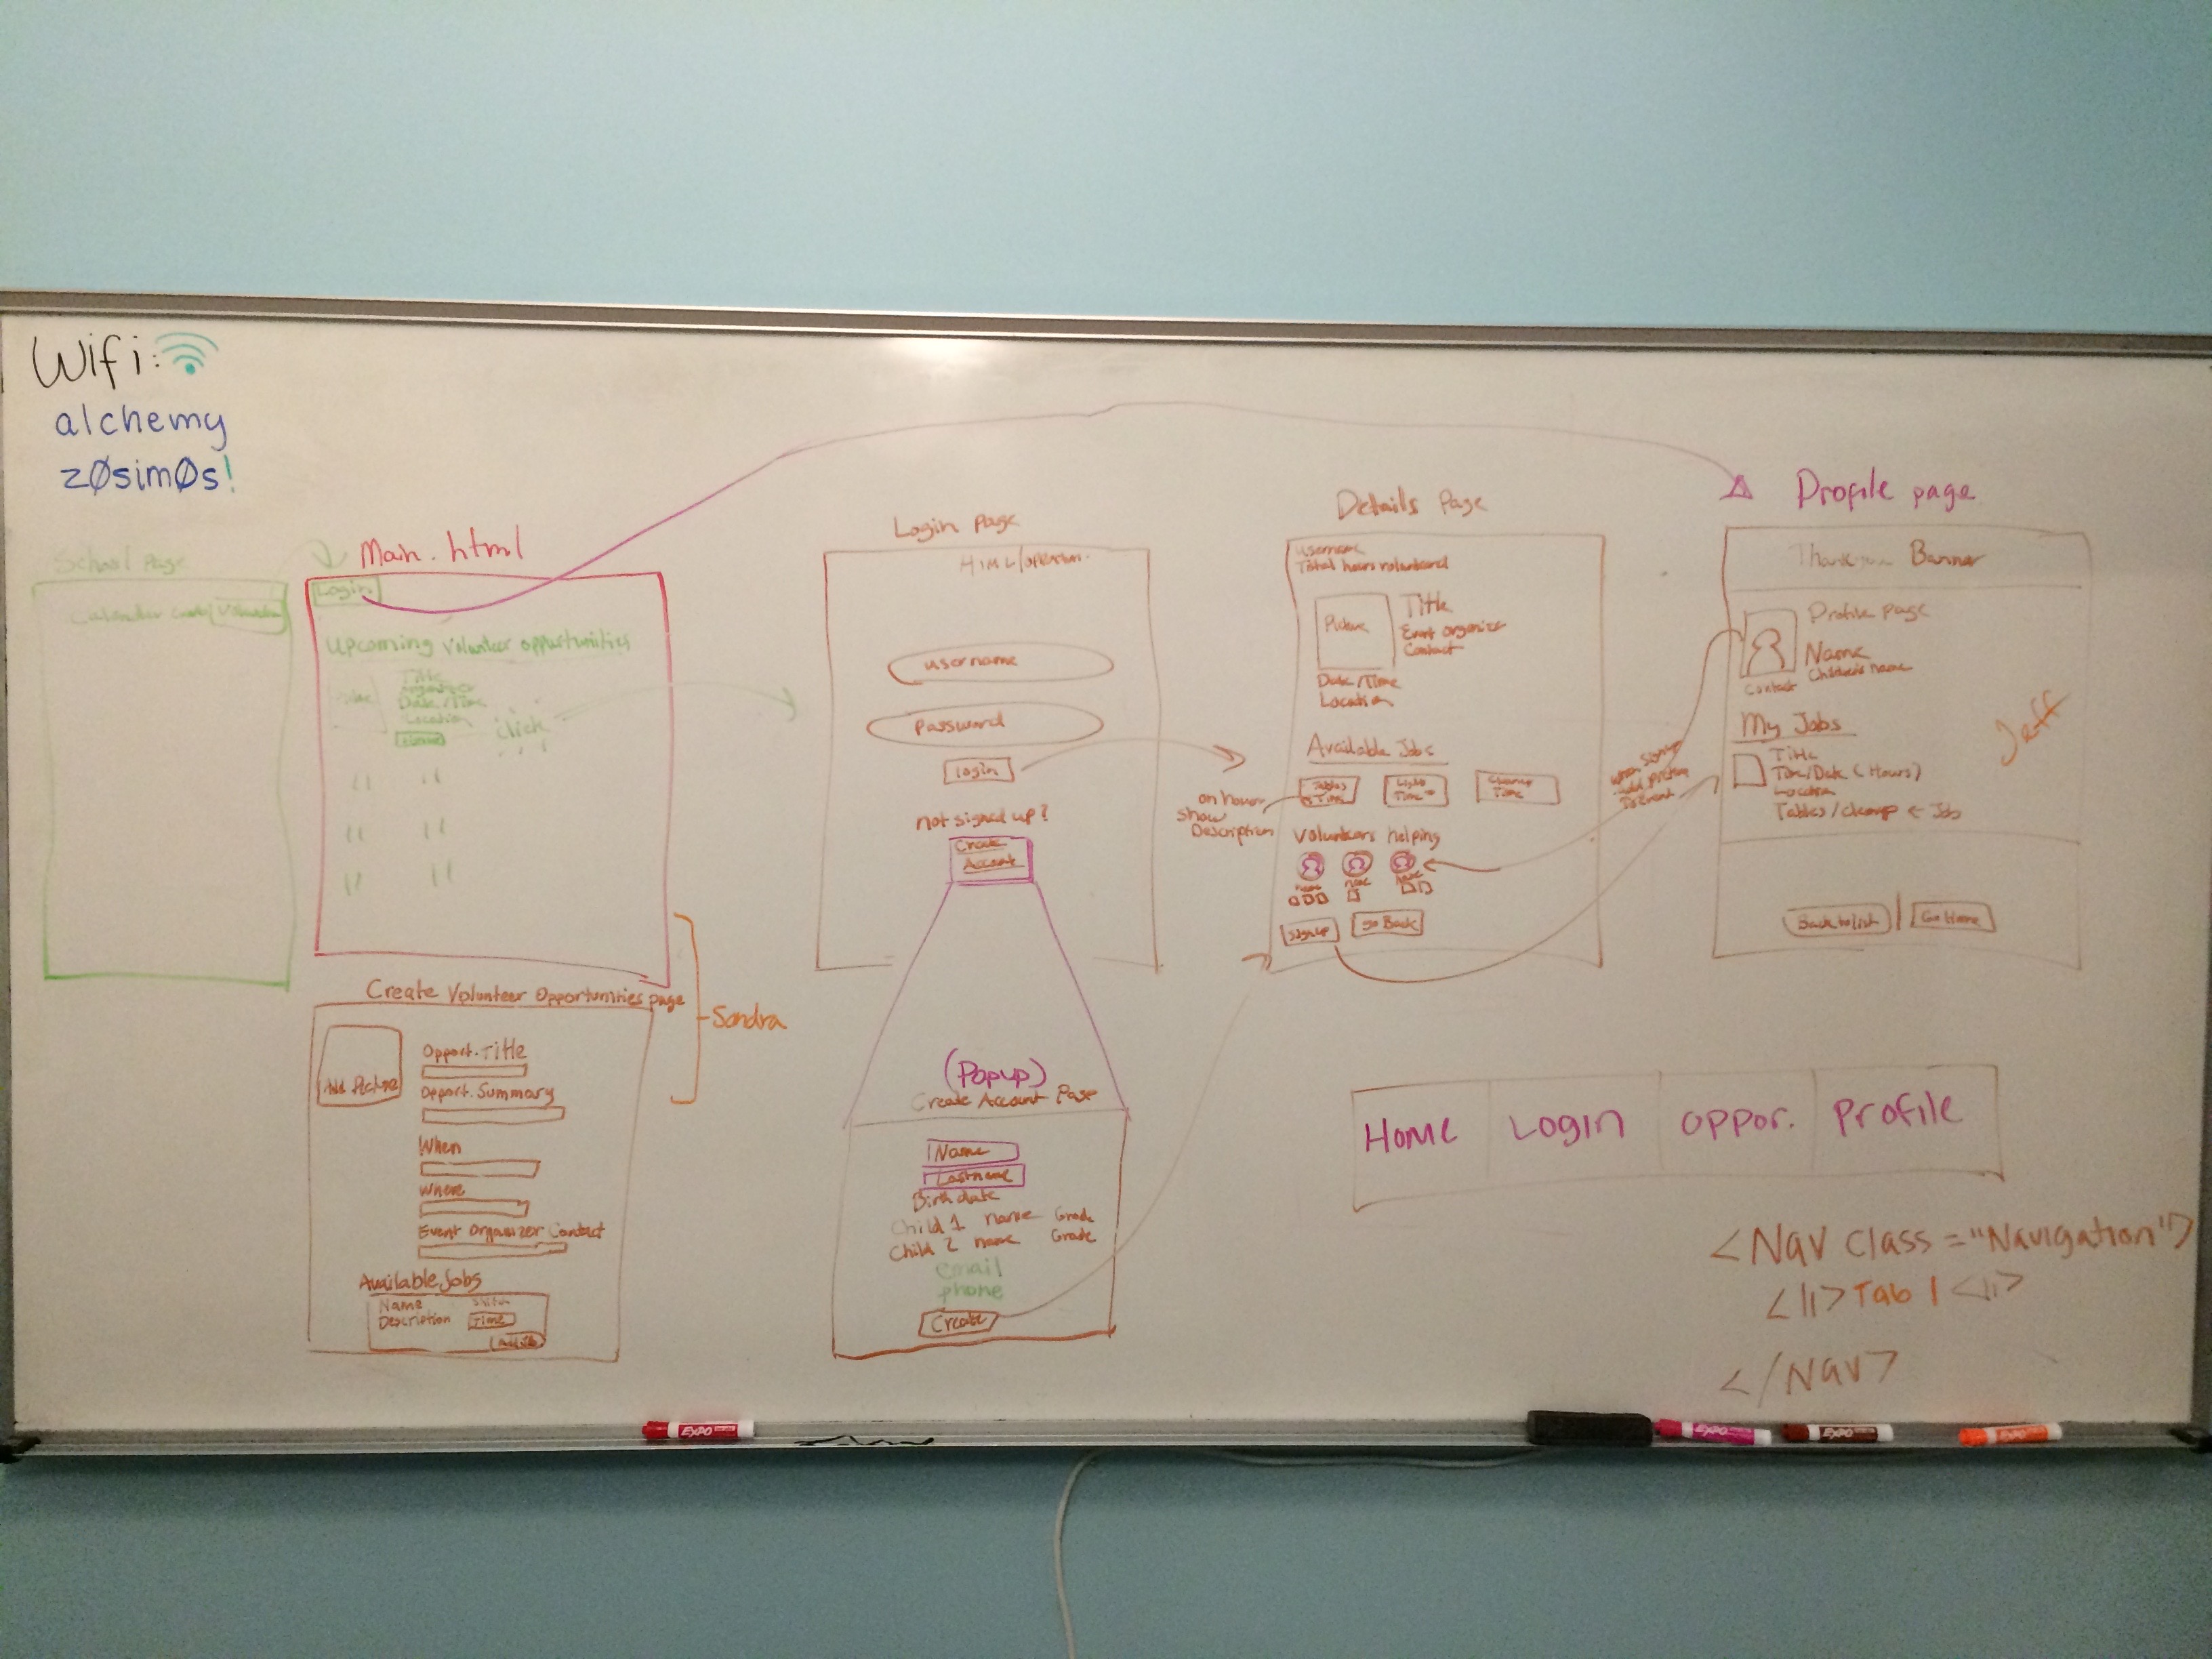 Wifi:
alchemy
zØsimØs!
School Page
Calendar
Main.html
Login
Upcoming Volunteer opportunities
Title
Date/Time
Location
click
" "
" "
" "
Create Volunteer Opportunities page
Add Picture
Opport. Title
Opport. Summary
When
Where
Event Organizer Contact
Available Jobs
Name
Description
Time
Sondra
Login Page
username
password
login
not signed up?
Create
Account
(Popup)
Create Account Page
Name
Lastname
Birthdate
Child 1 name Grade
Child 2 name Grade
email
phone
Create
Details Page
username
Total hours volunteered
Picture
Title
Event Organizer
Contact
Date/Time
Location
Available Jobs
Tables
Time
Time
Cleanup
Time
on hover
show
Description
Volunteers helping
Name
Name
Name
Signup
Go Back
when signup
add picture
Profile page
Banner
Profile page
Name
Children's name
Contact
My Jobs
Title
Time/Date (Hours)
Location
Tables/cleanup ← Job
Jeff
Back to list
Go Home
Home
Login
oppor.
Profile
<Nav class="Navigation">
<li>Tab 1<li>
</Nav>
EXPO
EXPO
EXPO
EXPO